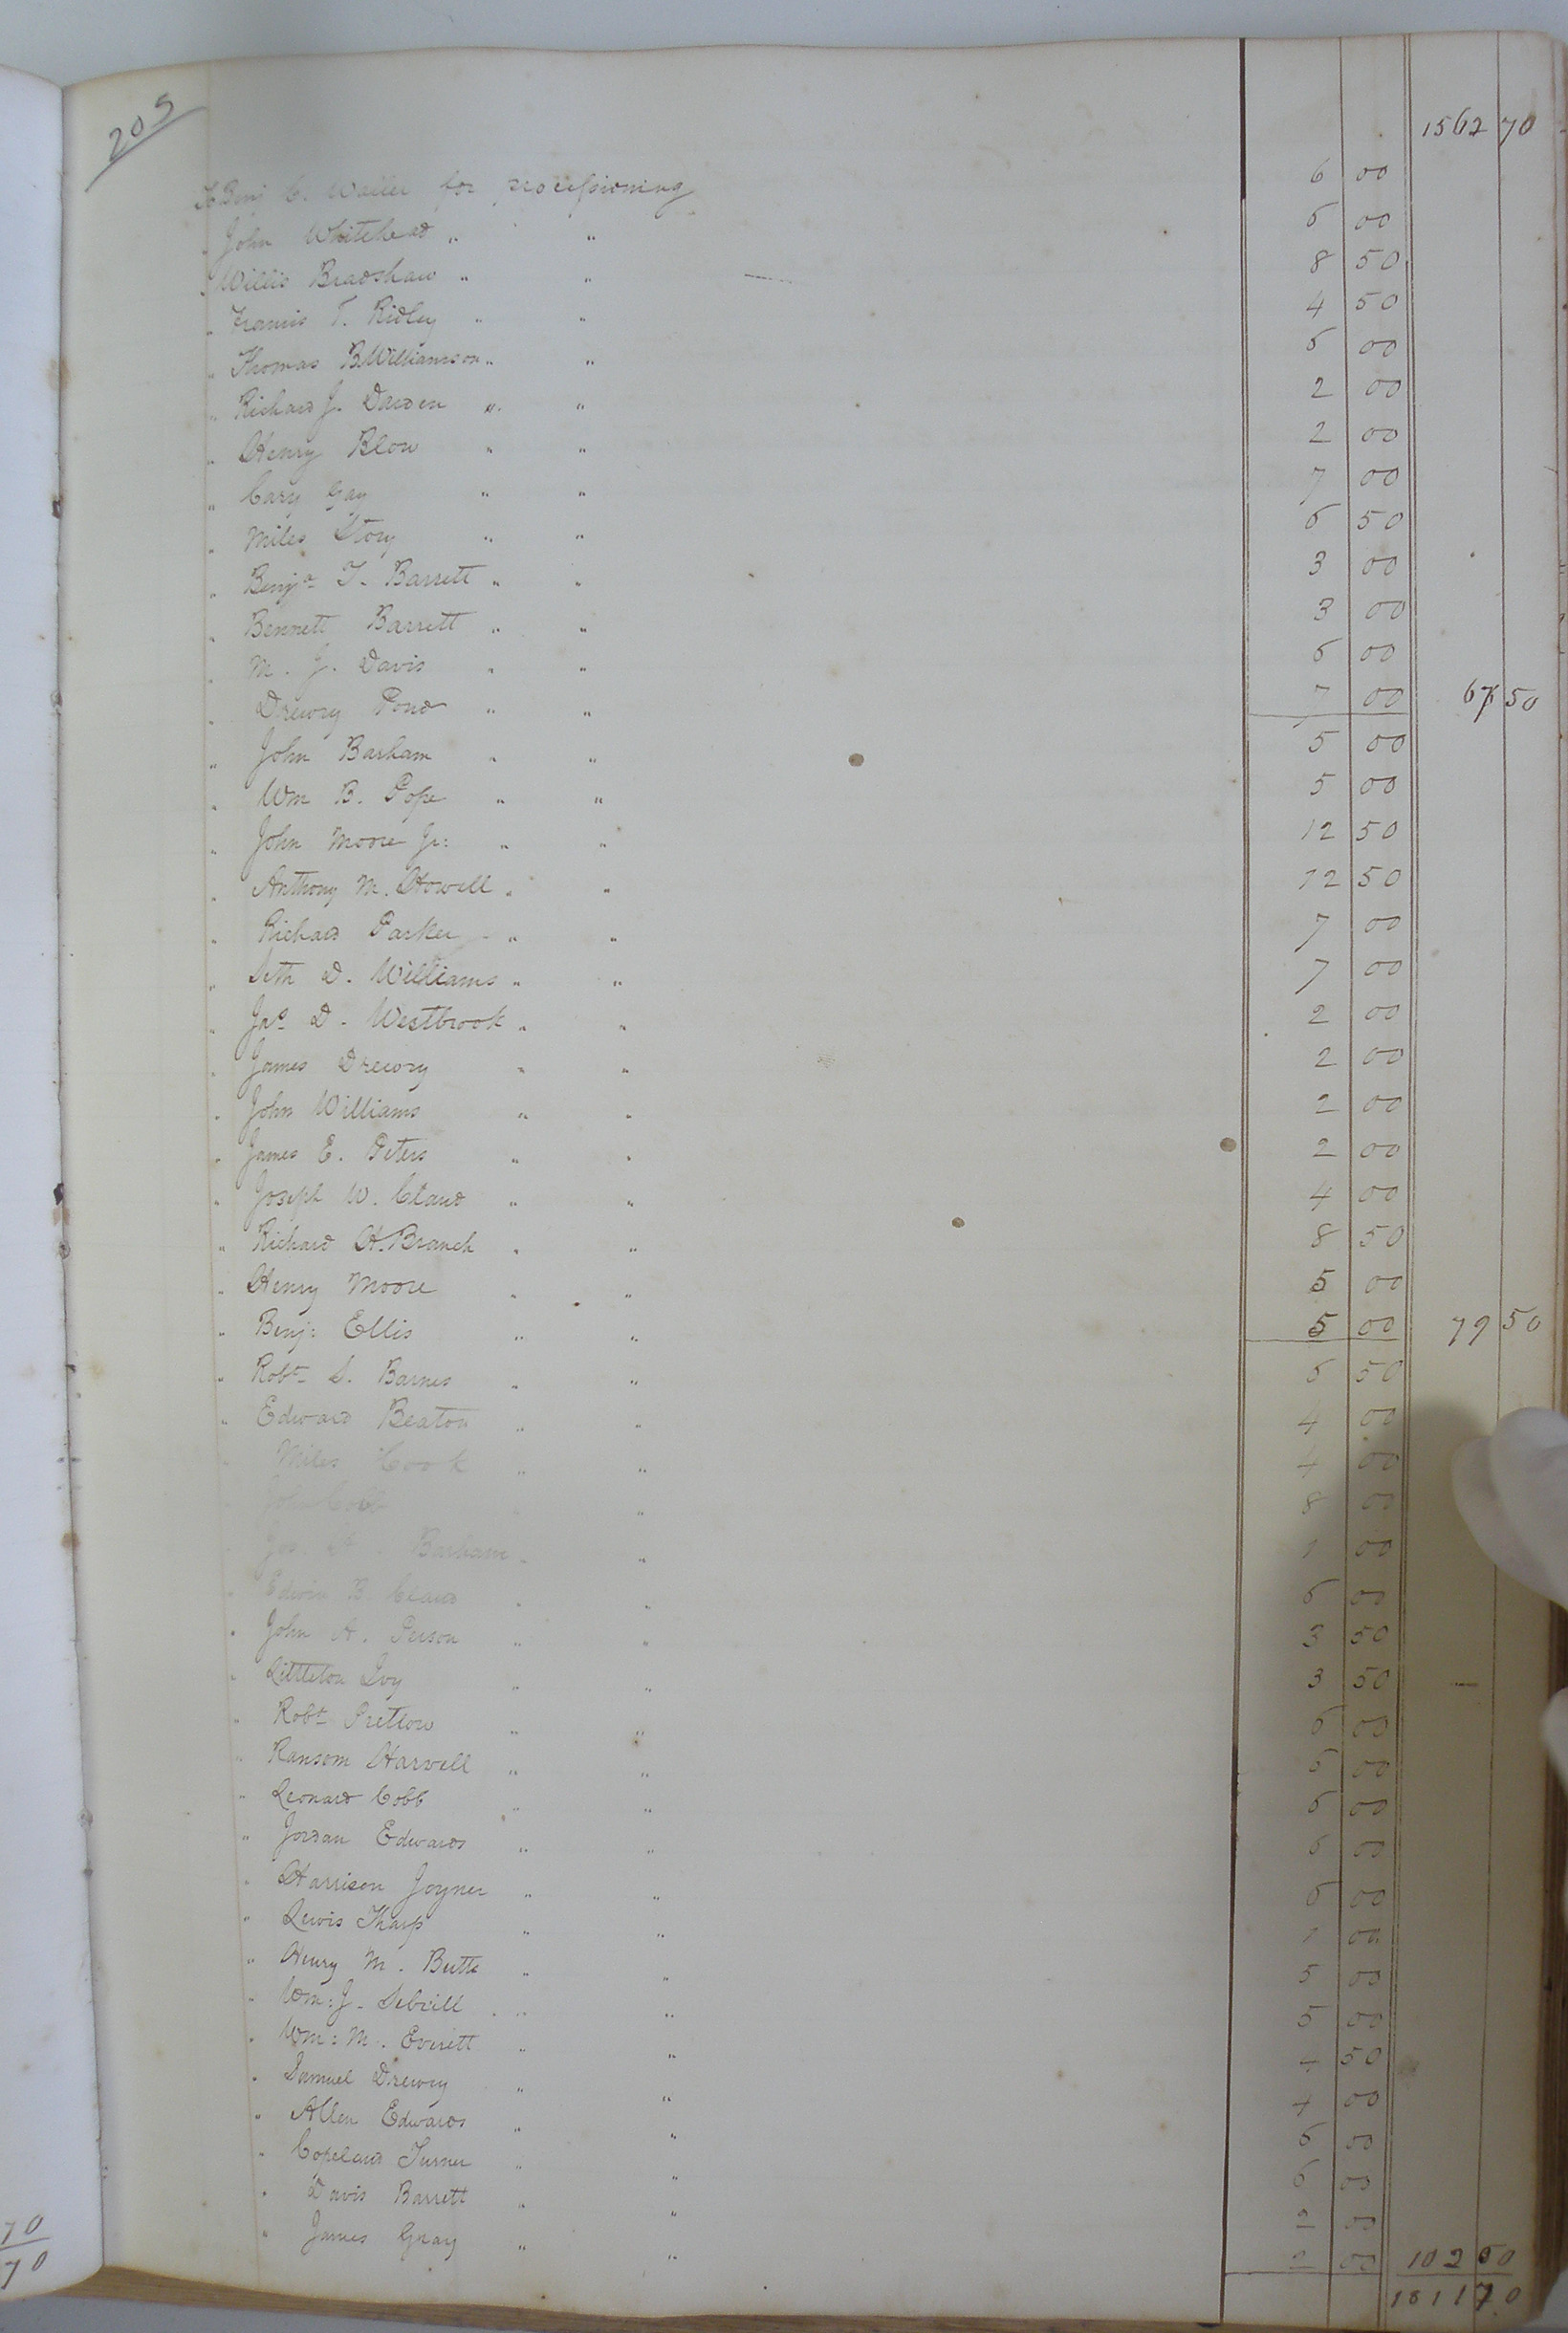 205
1562 70
To Benj C. Waller for processioning 6 00
" John Whitehead " " 6 00
" Willis Bradshaw " " 8 50
" Francis T. Ridley " " 4 50
" Thomas B Williamson " " 6 00
" Richard J. Darden " " 2 00
" Henry Blow " " 2 00
" Cary Gay " " 7 00
" Miles Story " " 6 50
" Benja T. Barrett " " 3 00
" Bennett Barrett " " 3 00
" M. J. Davis " " 6 00
" Drewry Pond " " 7 00 67 50
" John Barham " " 5 00
" Wm B. Pope " " 5 00
" John Moore Jr: " " 12 50
" Anthony M. Howell " " 12 50
" Richard Parker " " 7 00
" Seth D. Williams " " 7 00
" Jas D. Westbrook " " 2 00
" James Drewry " " 2 00
" John Williams " " 2 00
" James E. Peters " " 2 00
" Joseph W. Claud " " 4 00
" Richard H. Branch " " 8 50
" Henry Moore " " 5 00
" Benj: Ellis " " 5 00 79 50
" Robt S. Barnes " " 6 50
" Edward Beaton " " 4 00
" Miles Cook " " 4 00
" John Cobb " 8 00
" Barham " " 1 00
" Edwin B. Claud " " 6 00
" John A. Person " " 3 50
" Littleton Ivy " " 3 50
" Robt Pretlow " " 6 00
" Ransom Harvell " " 6 00
" Leonard Cobb " " 6 00
" Jordan Edwards " " 6 00
" Harrison Joyner " " 6 00
" Lewis Tharp " " 1 00
" Henry M. Butts " " 5 00
" Wm: J. Sebrell " " 5 00
" Wm: M. Everett " " 4 50
" Samuel Drewry " " 4 00
" Allen Edwards " " 6 00
" Copeland Turner " " 6 00
" Davis Barrett " " 2 00
" James Gray " " 2 00 102 00
1811 70
70
70